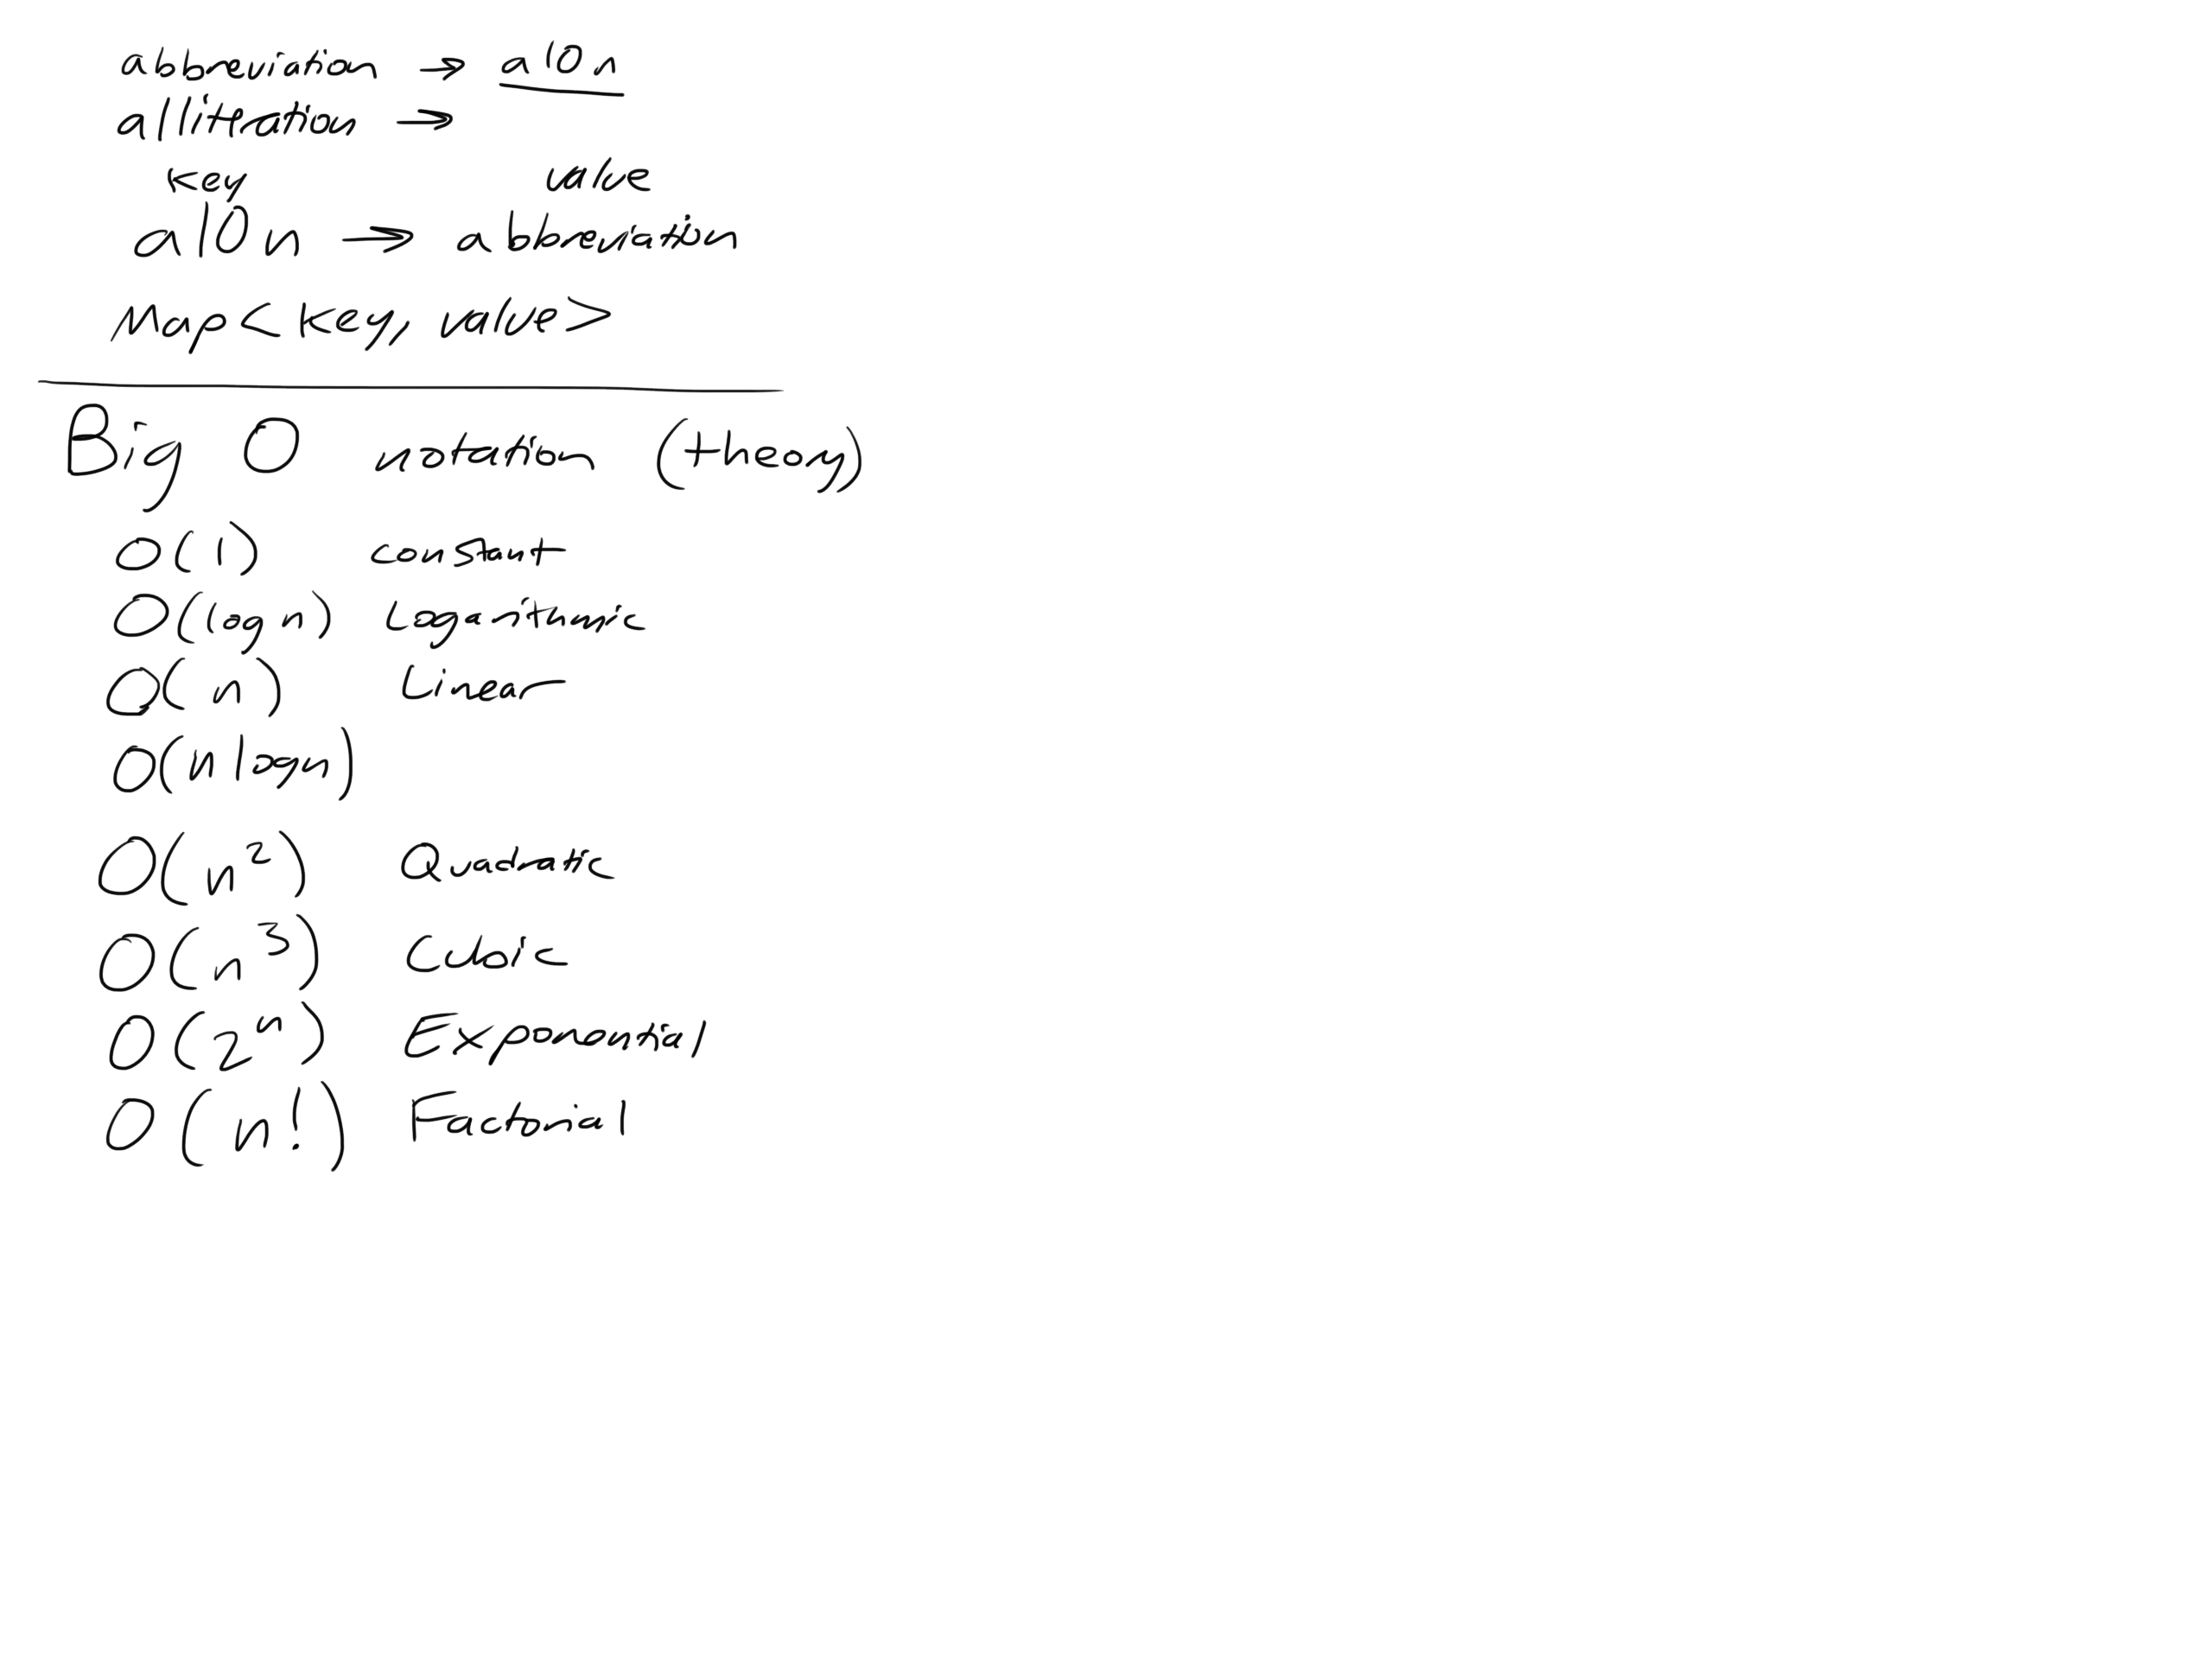 abbreviation → a10n
allitration →
key value
a10n → abbreviation
Map<key, value>
Big O notation (theory)
O(1) constant
O(log n) Logarithmic
O(n) Linear
O(n logn)
O(n²) Quadratic
O(n³) Cubic
O(2ⁿ) Exponential
O(n!) Factorial